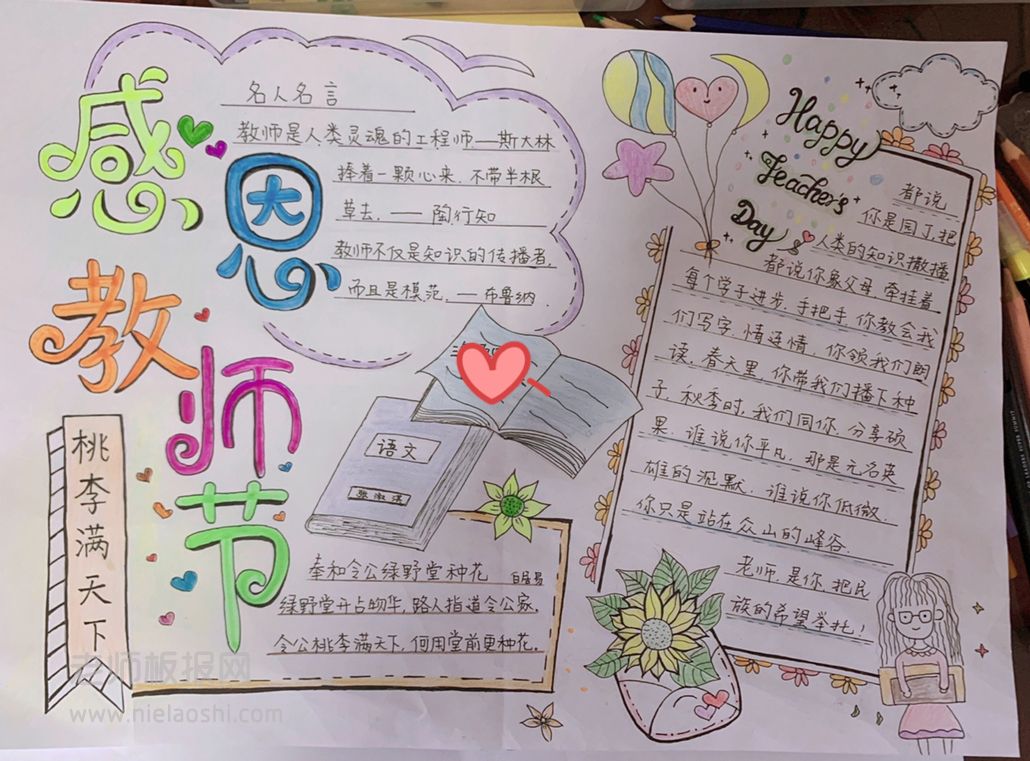 感恩
教师节
名人名言
教师是人类灵魂的工程师——斯大林
捧着一颗心来,不带半根
草去,——陶行知
教师不仅是知识的传播者,
而且是模范,——布鲁纳
语文
桃李满天下
奉和令公绿野堂种花 白居易
绿野堂开占物华,路人指道令公家,
令公桃李满天下,何用堂前更种花.
Happy
Teacher's
Day
都说
你是园丁,把
人类的知识撒播
都说你象父母,牵挂着
每个学子进步,手把手,你教会我
们写字,情连情,你领我们朗
读,春天里,你带我们播下种
子,秋季时,我们同你,分享硕
果,谁说你平凡,那是无名英
雄的沉默,谁说你低微,
你只是站在众山的峰谷.
老师,是你,把民
族的希望举托!
老师板报网
www.nielaoshi.com